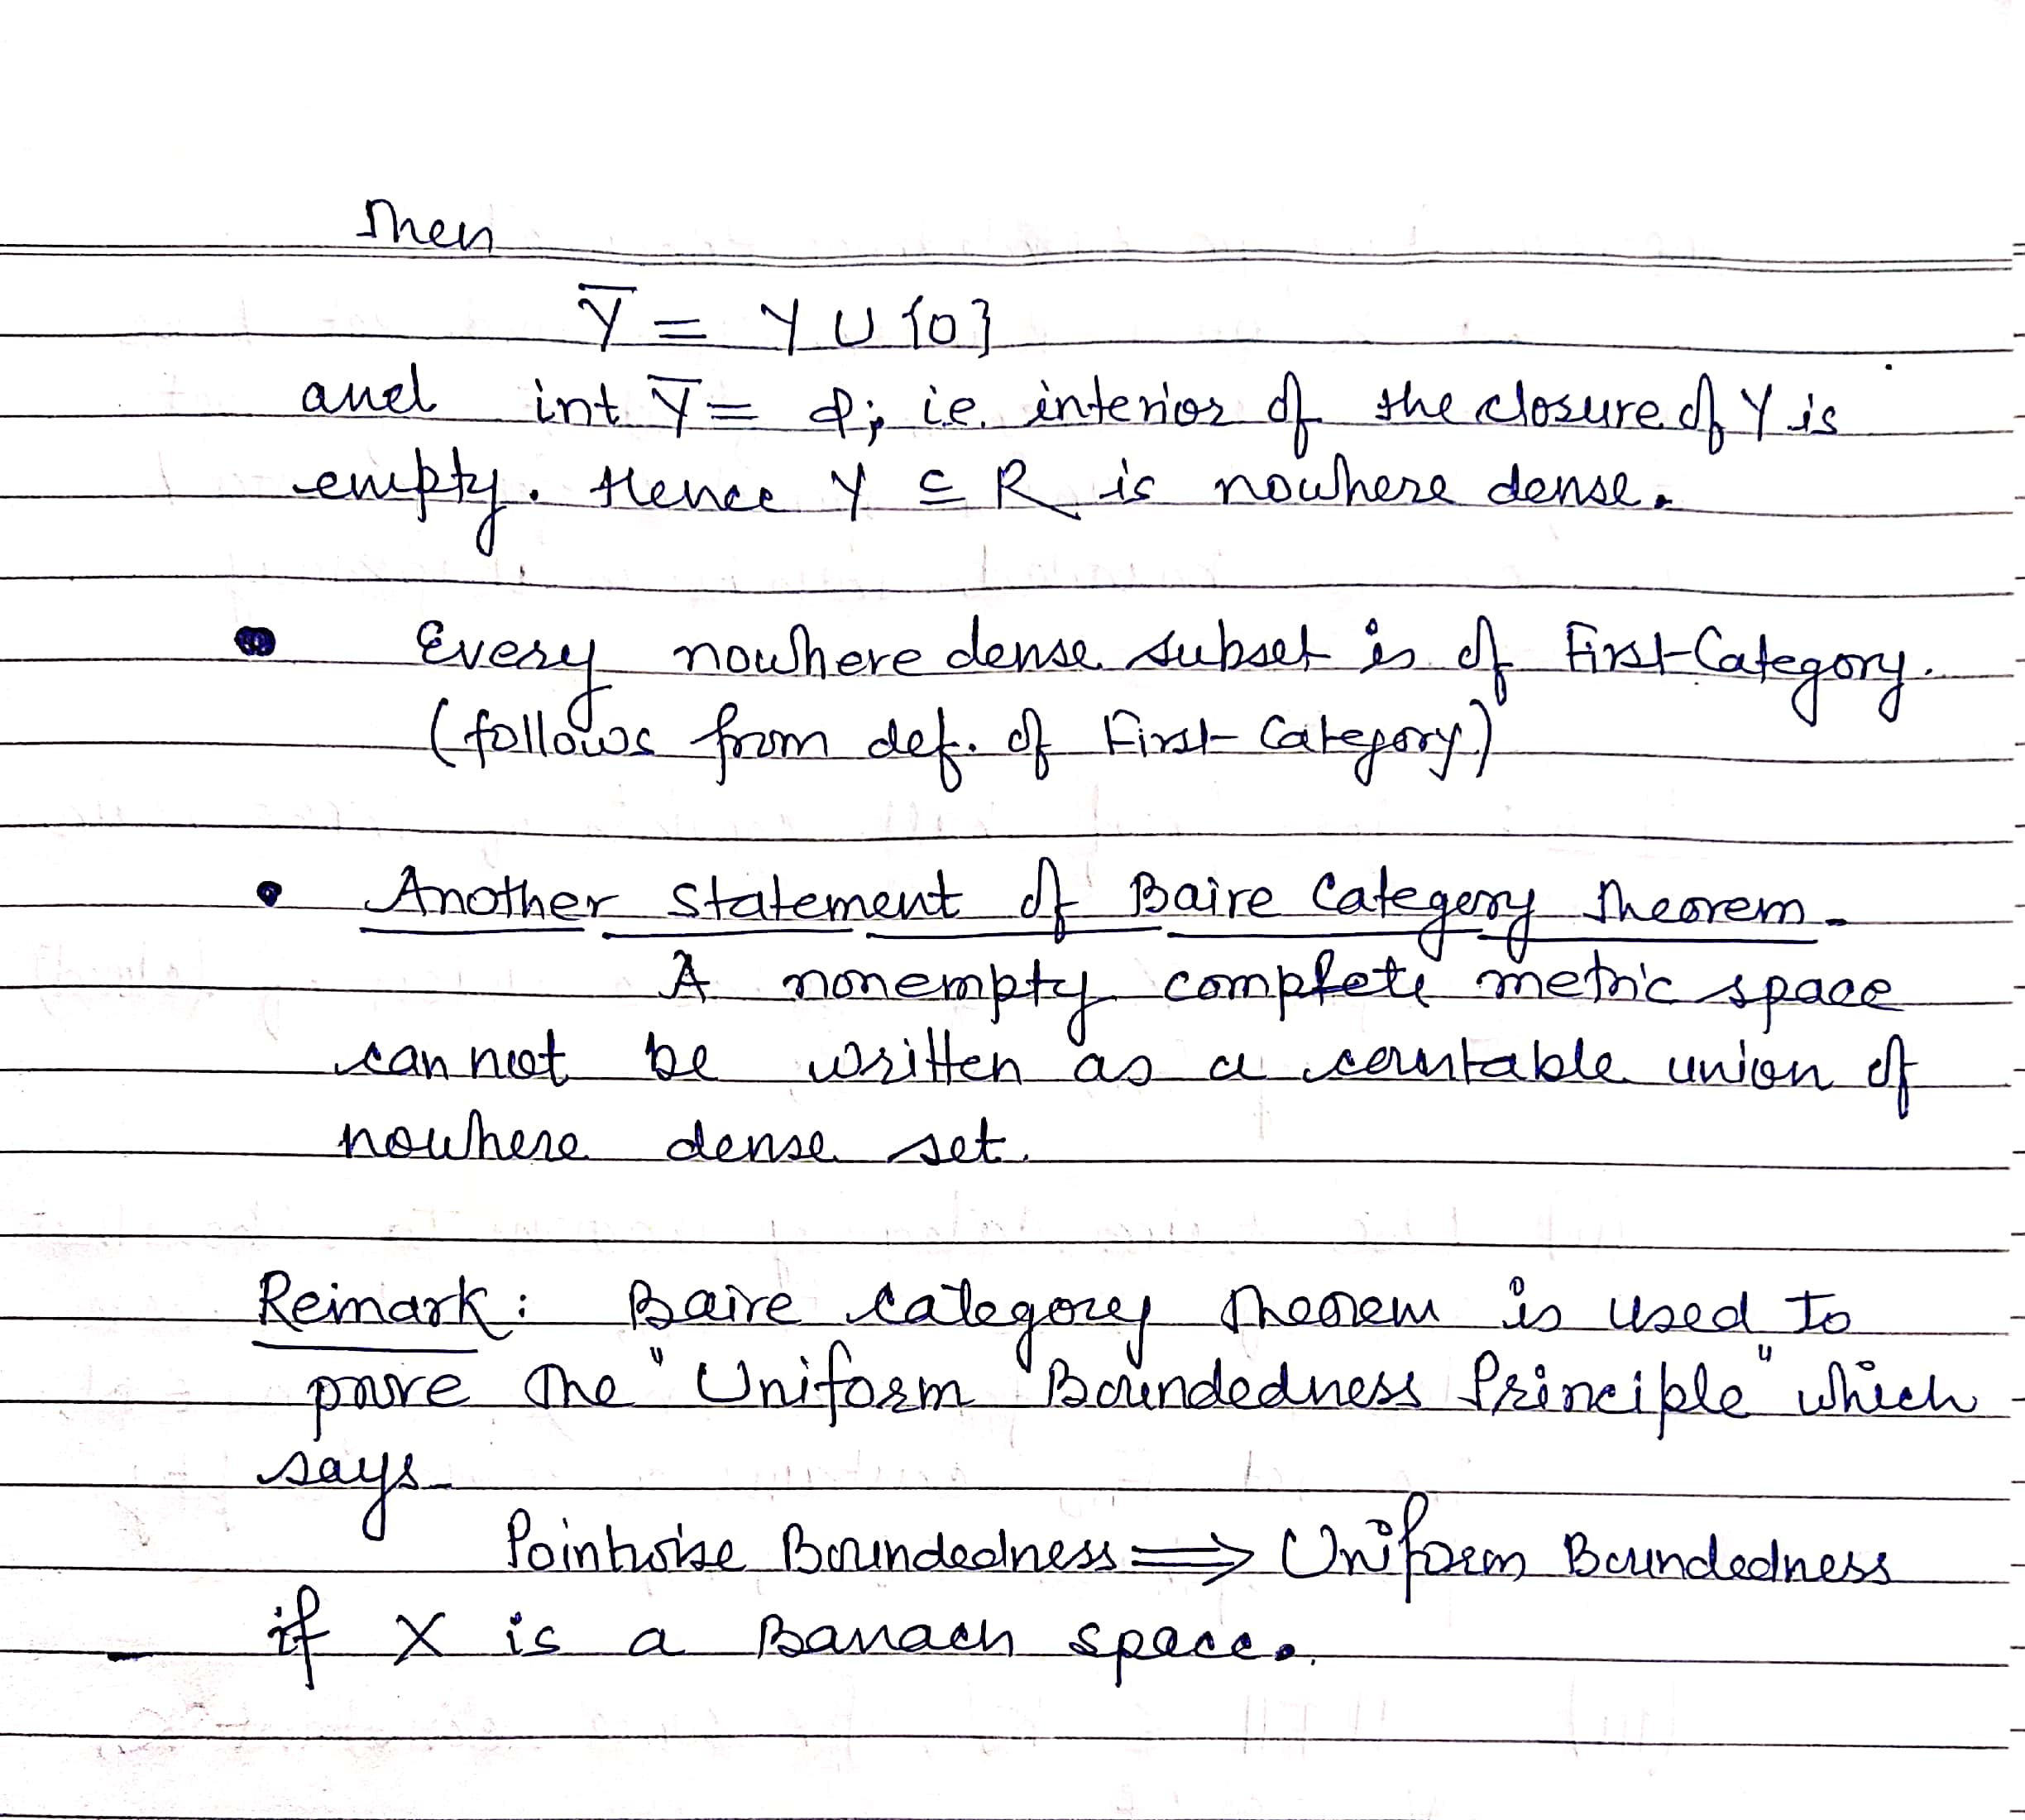 Then
Y̅ = Y ∪ {0}
and int Y̅ = φ; i.e. interior of the closure of Y is
empty. Hence Y ⊆ R is nowhere dense.
• Every nowhere dense subset is of First Category.
(follows from def. of First Category)
• Another statement of Baire Category Theorem -
A nonempty complete metric space
can not be written as a countable union of
nowhere dense set.
Remark: Baire Category Theorem is used to
prove the "Uniform Boundedness Principle" which
says -
Pointwise Boundedness ⟹ Uniform Boundedness
if X is a Banach space.